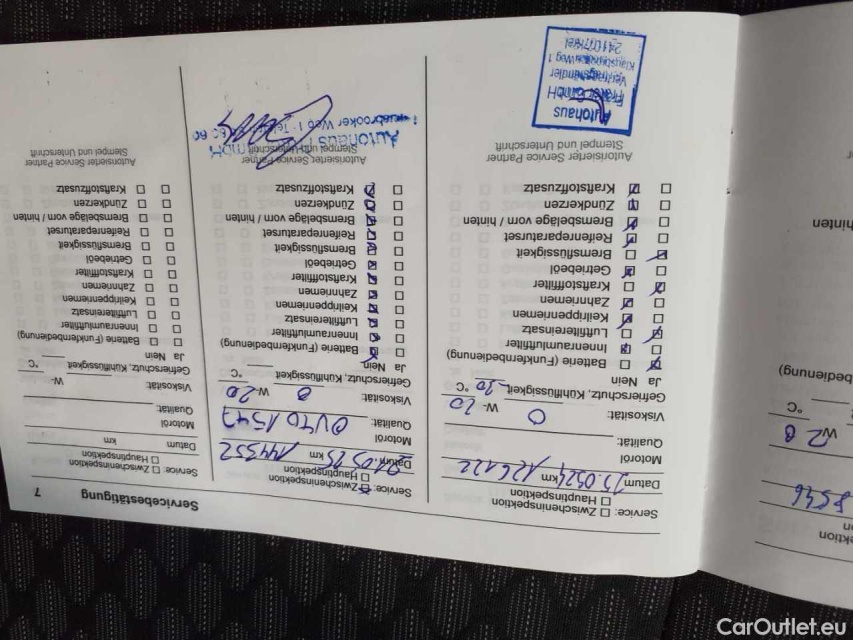 Servicebestätigung
7
Service: Zwischeninspektion
Hauptinspektion
Datum km 126422
Motoröl
Qualität:
Viskosität: 0 W-20
Gefrierschutz, Kühlflüssigkeit -20 °C
Ja Nein
Batterie (Funkfernbedienung)
Innenraumluftfilter
Luftfiltereinsatz
Keilrippenriemen
Zahnriemen
Kraftstofffilter
Getriebeöl
Bremsflüssigkeit
Reifenreparaturset
Bremsbeläge vorn / hinten
Zündkerzen
Kraftstoffzusatz
Autorisierter Service Partner
Stempel und Unterschrift
Autohaus
GmbH
Vertragshändler
Weg 1
24107 Kiel
Service: Zwischeninspektion
Hauptinspektion
Datum 21.05.25 km 144352
Motoröl
Qualität: 0W20
Viskosität: 0 W-20
Gefrierschutz, Kühlflüssigkeit °C
Ja Nein
Batterie (Funkfernbedienung)
Innenraumluftfilter
Luftfiltereinsatz
Keilrippenriemen
Zahnriemen
Kraftstofffilter
Getriebeöl
Bremsflüssigkeit
Reifenreparaturset
Bremsbeläge vorn / hinten
Zündkerzen
Kraftstoffzusatz
Autorisierter Service Partner
Stempel und Unterschrift
Autohaus
Service: Zwischeninspektion
Hauptinspektion
Datum km
Motoröl
Qualität:
Viskosität: W-
Gefrierschutz, Kühlflüssigkeit °C
Ja Nein
Batterie (Funkfernbedienung)
Innenraumluftfilter
Luftfiltereinsatz
Keilrippenriemen
Zahnriemen
Kraftstofffilter
Getriebeöl
Bremsflüssigkeit
Reifenreparaturset
Bremsbeläge vorn / hinten
Zündkerzen
Kraftstoffzusatz
Autorisierter Service Partner
Stempel und Unterschrift
CarOutlet.eu